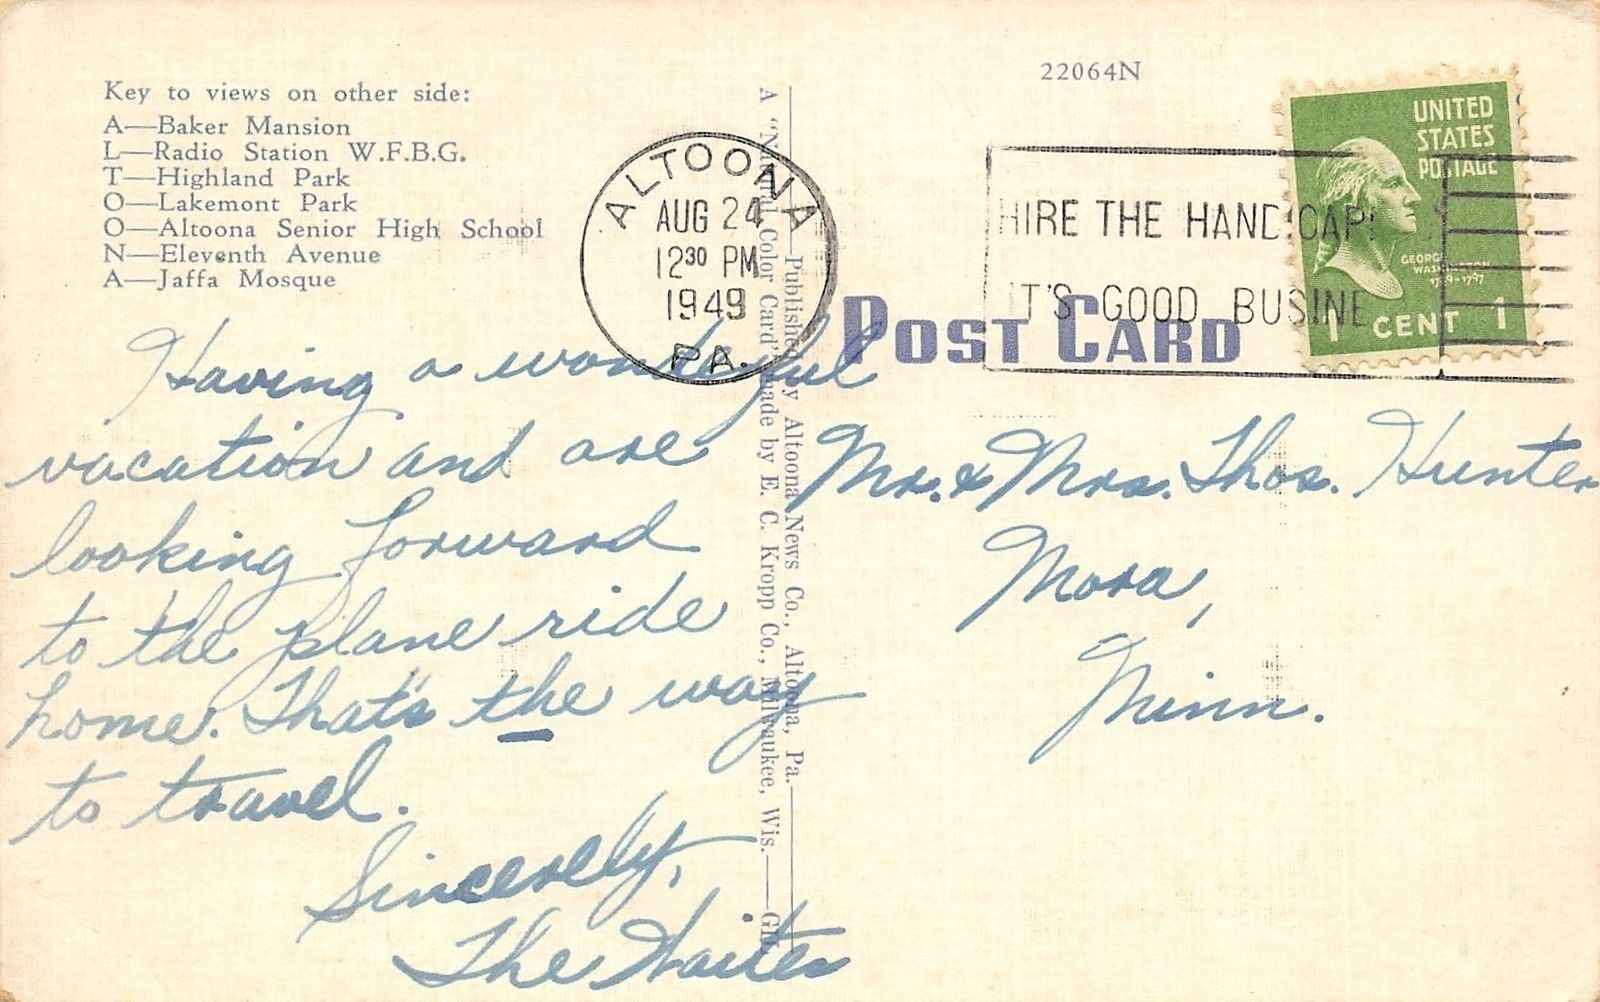 Key to views on other side:
A—Baker Mansion
L—Radio Station W.F.B.G.
T—Highland Park
O—Lakemont Park
O—Altoona Senior High School
N—Eleventh Avenue
A—Jaffa Mosque
Having a wonderful
vacation and are
looking forward
to the plane ride
home. That's the way
to travel.
Sincerely,
The Waites
A "Natural Color Card" made by E. C. Kropp Co., Milwaukee, Wis.
Published by Altoona News Co., Altoona, Pa.
22064N
ALTOONA
AUG 24
12 30 PM
1949
PA.
HIRE THE HANDICAP
IT'S GOOD BUSINE
UNITED
STATES
POSTAGE
GEORGE
WASHINGTON
1789-1797
1 CENT 1
POST CARD
Mr. & Mrs. Thos. Hunter
Mora,
Minn.